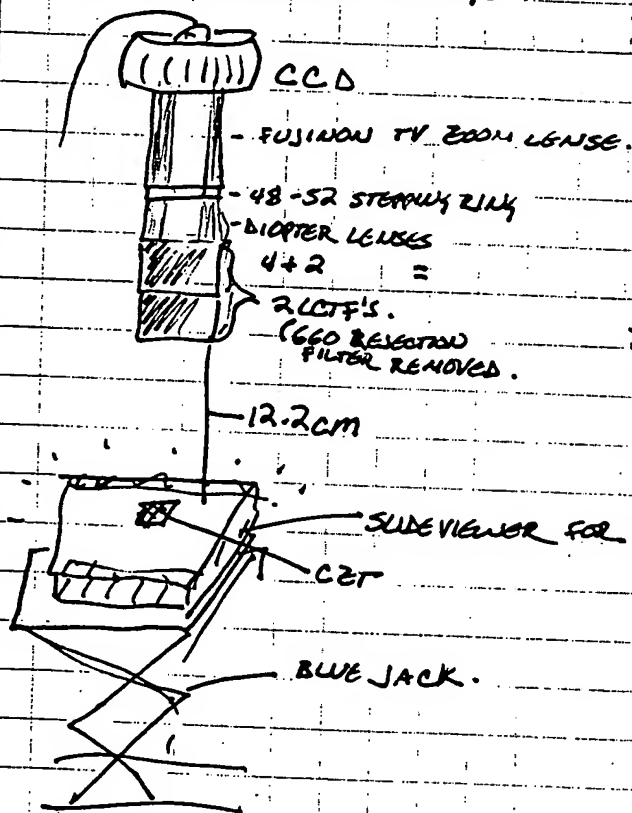 CCD
- FUJINON TV ZOOM LENSE.
- 48-52 STEPPING RING
- DIOPTER LENSES
4+2 =
2 LCTF'S.
(660 REJECTION
FILTER REMOVED.
12.2cm
SLIDEVIEWER FOR
CZT
BLUE JACK.